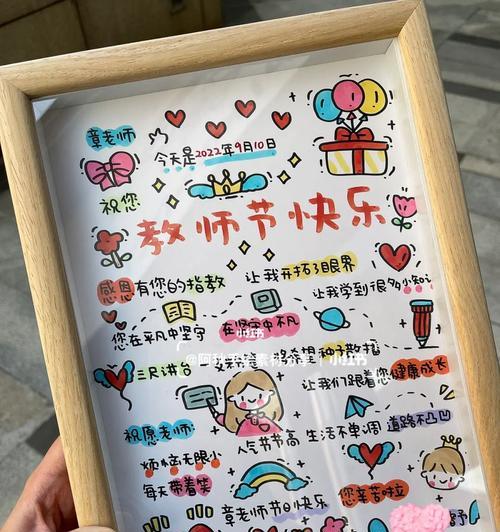 章老师
今天是2022年9月10日
祝您
教师节快乐
感恩有您的指教
让我开拓了眼界
让我学到很多小知识
您在平凡中坚守
在坚守中不凡
小红书
三尺讲台
希望种子数播
让我们跟着您健康成长
祝愿老师:
人气节节高
生活不单调
道路不凹凸
烦恼无限小
每天带着笑
您辛苦啦
章老师节日快乐